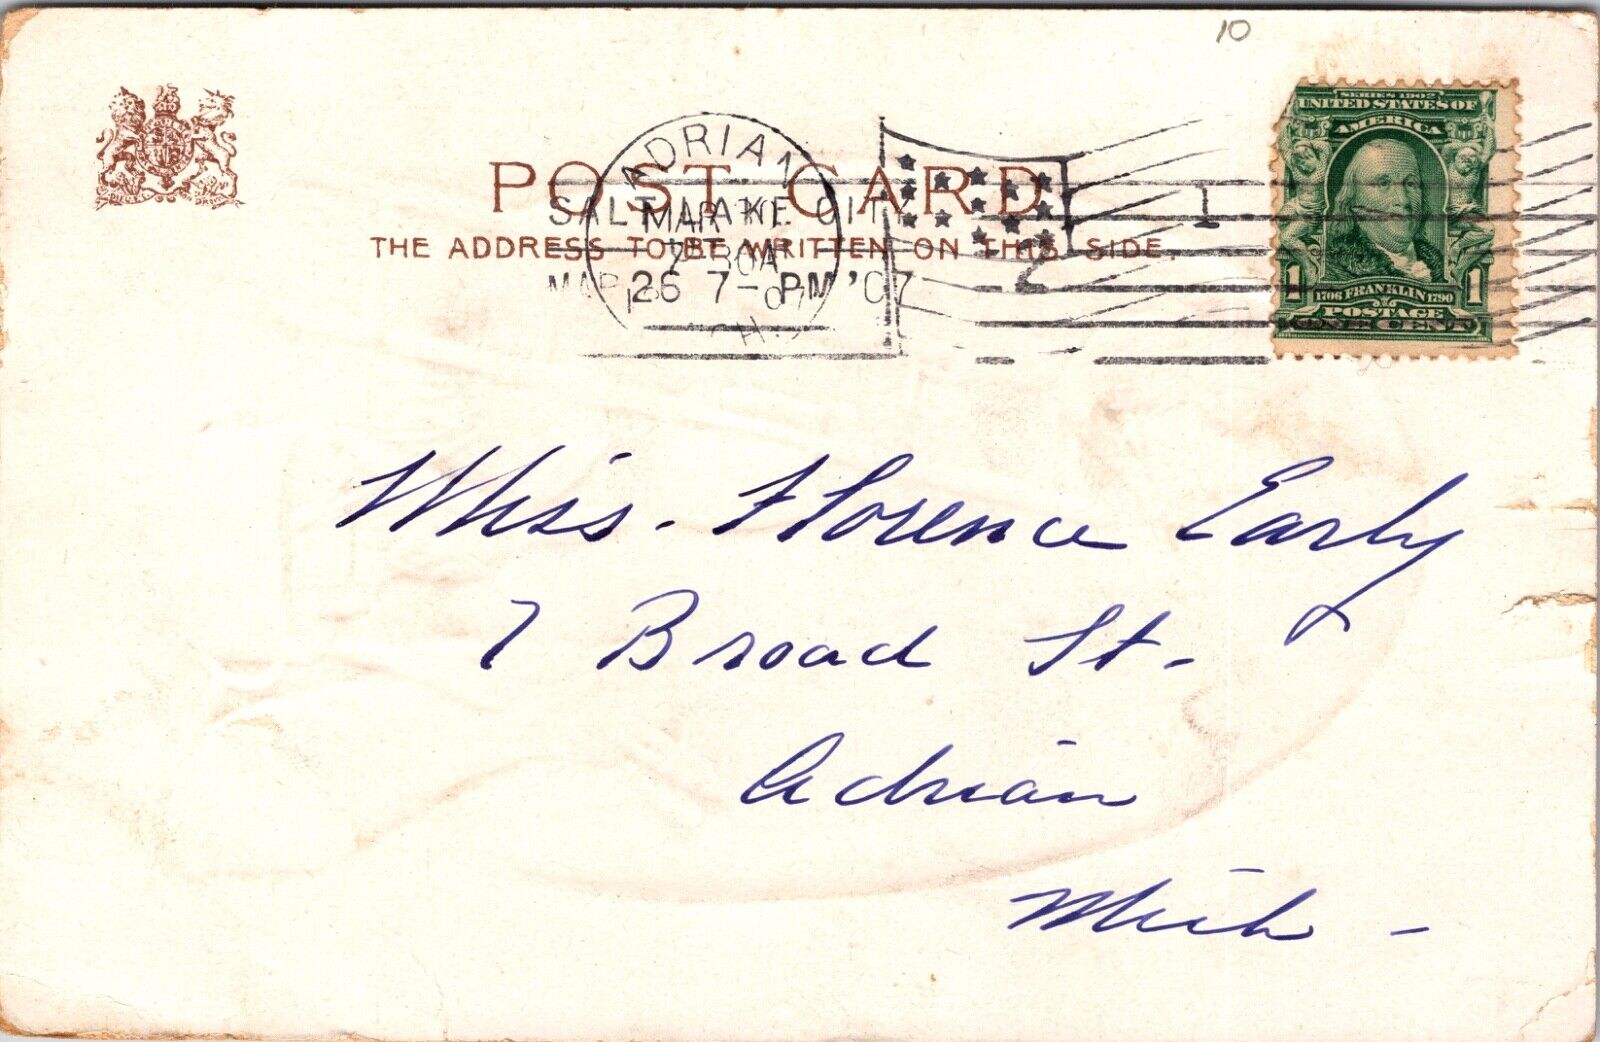 10
SERIES 1902
UNITED STATES OF
AMERICA
1 1706 FRANKLIN 1790 1
POSTAGE
ONE CENT
POST CARD
THE ADDRESS TO BE WRITTEN ON THIS SIDE.
ADRIAN
MAR
SALT LAKE CITY
MAR 26 7-PM '07
1
Miss. Florence Early
7 Broad St.
Adrian
Mich -